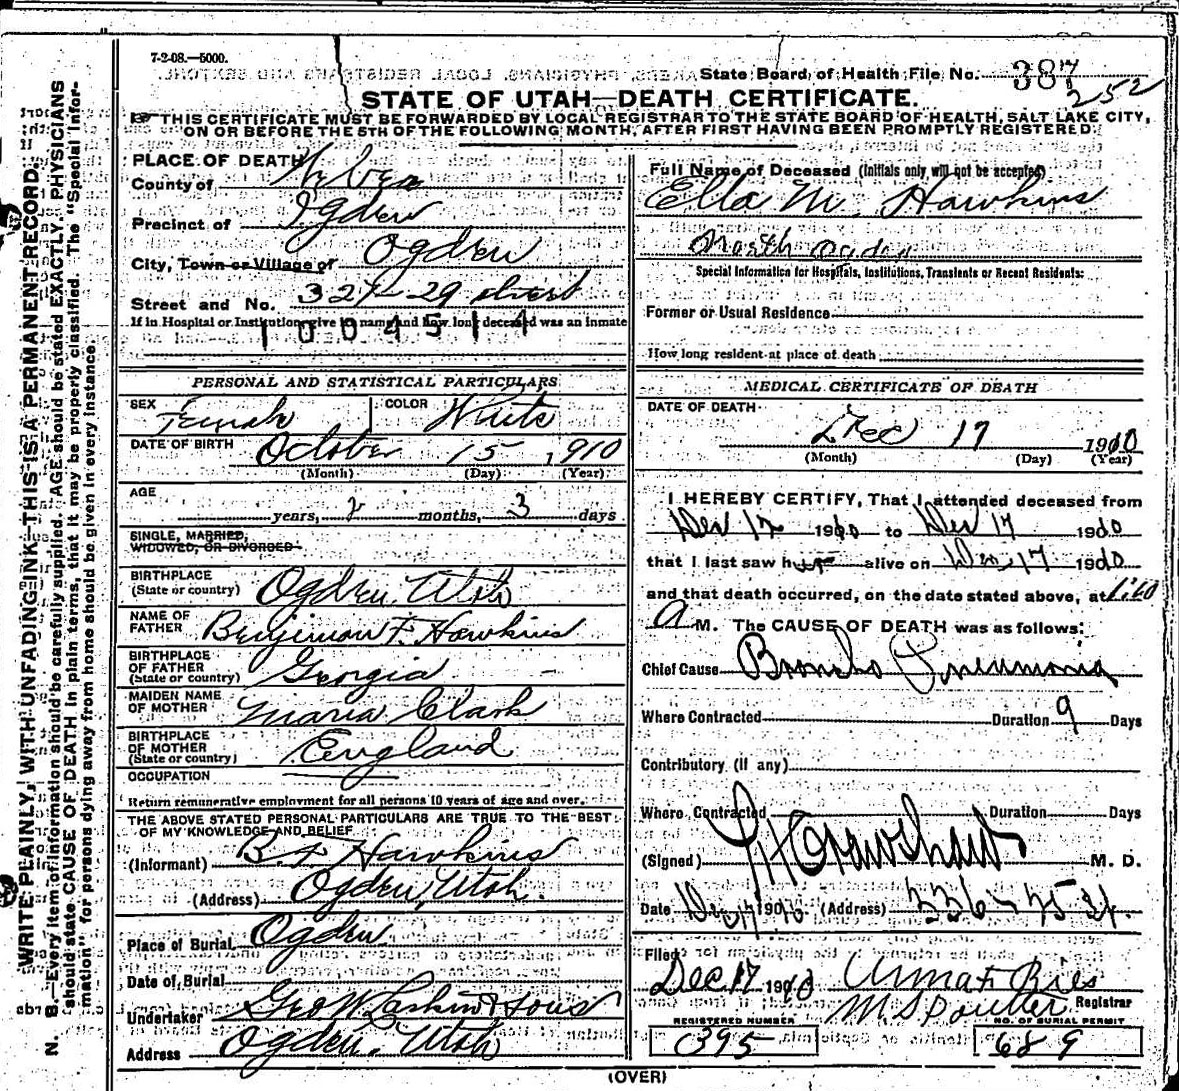 7-2-08.—5000.
State Board of Health File No. 387
252
STATE OF UTAH—DEATH CERTIFICATE.
THIS CERTIFICATE MUST BE FORWARDED BY LOCAL REGISTRAR TO THE STATE BOARD OF HEALTH, SALT LAKE CITY,
ON OR BEFORE THE 5TH OF THE FOLLOWING MONTH, AFTER FIRST HAVING BEEN PROMPTLY REGISTERED.
PLACE OF DEATH
County of Weber
Precinct of Ogden
City, Town or Village of Ogden
Street and No. 327-29 street
If in Hospital or Institution, give name and how long deceased was an inmate
1004514
PERSONAL AND STATISTICAL PARTICULARS
SEX Female COLOR White
DATE OF BIRTH October 15, 1910
(Month) (Day) (Year)
AGE
years, 2 months, 3 days
SINGLE, MARRIED,
WIDOWED, OR DIVORCED
BIRTHPLACE
(State or country) Ogden, Utah
NAME OF
FATHER Benjiman F. Hawkins
BIRTHPLACE
OF FATHER
(State or country) Georgia
MAIDEN NAME
OF MOTHER Maria Clark
BIRTHPLACE
OF MOTHER
(State or country) England
OCCUPATION
Return remunerative employment for all persons 10 years of age and over.
THE ABOVE STATED PERSONAL PARTICULARS ARE TRUE TO THE BEST
OF MY KNOWLEDGE AND BELIEF
(Informant) B. F. Hawkins
(Address) Ogden, Utah.
Place of Burial Ogden
Date of Burial
Undertaker Geo W Larkin & Sons
Address Ogden, Utah
Full Name of Deceased (Initials only will not be accepted)
Ella M. Hawkins
North Ogden
Special Information for Hospitals, Institutions, Transients or Recent Residents:
Former or Usual Residence
How long resident at place of death
MEDICAL CERTIFICATE OF DEATH
DATE OF DEATH
Dec 17 1910
(Month) (Day) (Year)
I HEREBY CERTIFY, That I attended deceased from
Dec 12 1910 to Dec 17 1910
that I last saw her alive on Dec 17 1910
and that death occurred, on the date stated above, at
A M. The CAUSE OF DEATH was as follows:
Chief Cause Broncho Pneumonia
Where Contracted Duration 9 Days
Contributory (if any)
Where Contracted Duration Days
(Signed) M. D.
Date Dec 17 1910 (Address)
Filed
Dec 17 1910
Registrar
REGISTERED NUMBER
395
NO. OF BURIAL PERMIT
689
(OVER)
N. B.—Every item of information should be carefully supplied. AGE should be stated EXACTLY. PHYSICIANS
should state CAUSE OF DEATH in plain terms, that it may be properly classified. The "Special Infor-
mation" for persons dying away from home should be given in every instance.
WRITE PLAINLY, WITH UNFADING INK—THIS IS A PERMANENT RECORD.